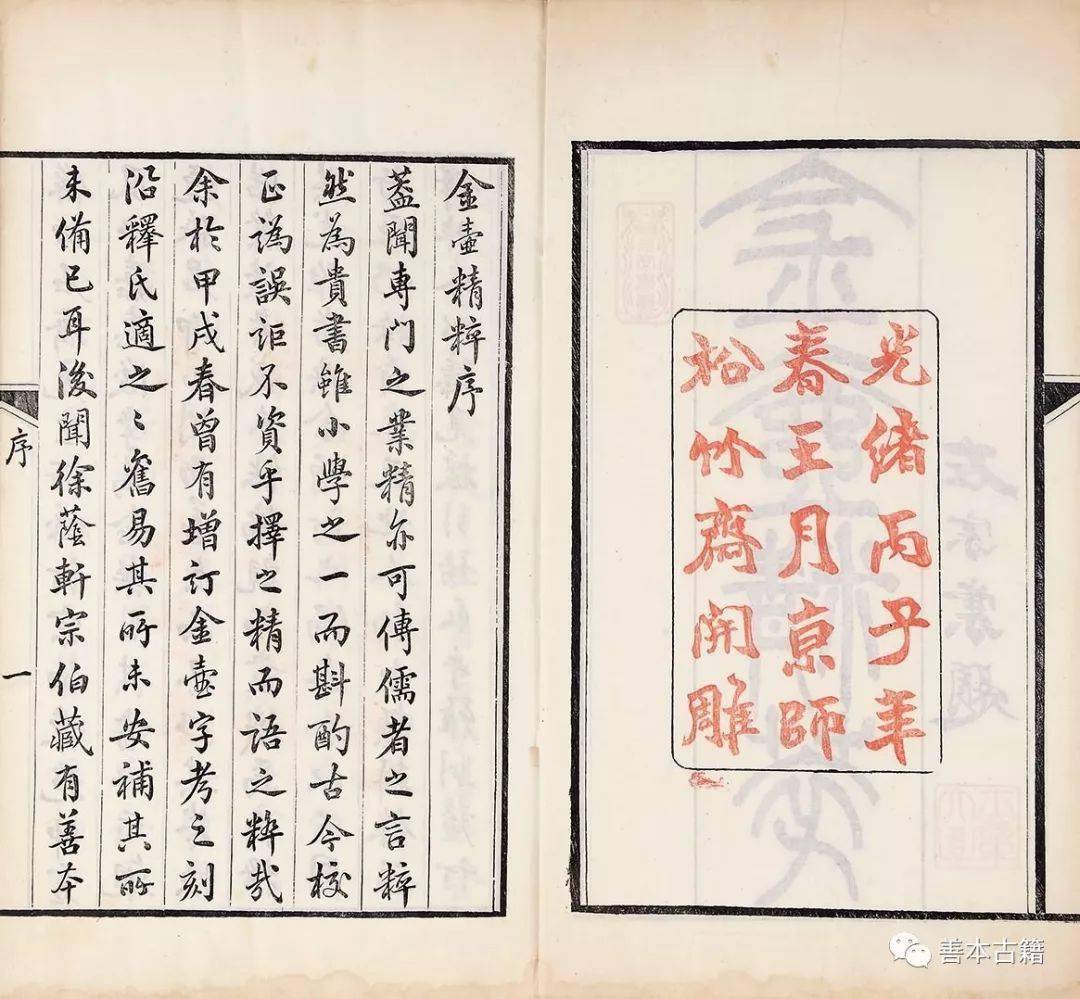 光緒丙子年
春王月京師
松竹齋開雕
金壺精粹序
蓋聞專門之業精亦可傳儒者之言粹
然為貴書雖小學之一而斟酌古今校
正譌誤詎不資乎擇之精而語之粹哉
余於甲戌春曾有增訂金壺字考之刻
沿釋氏適之之舊易其所未安補其所
未備已耳後聞徐蔭軒宗伯藏有善本
序
一
善本古籍